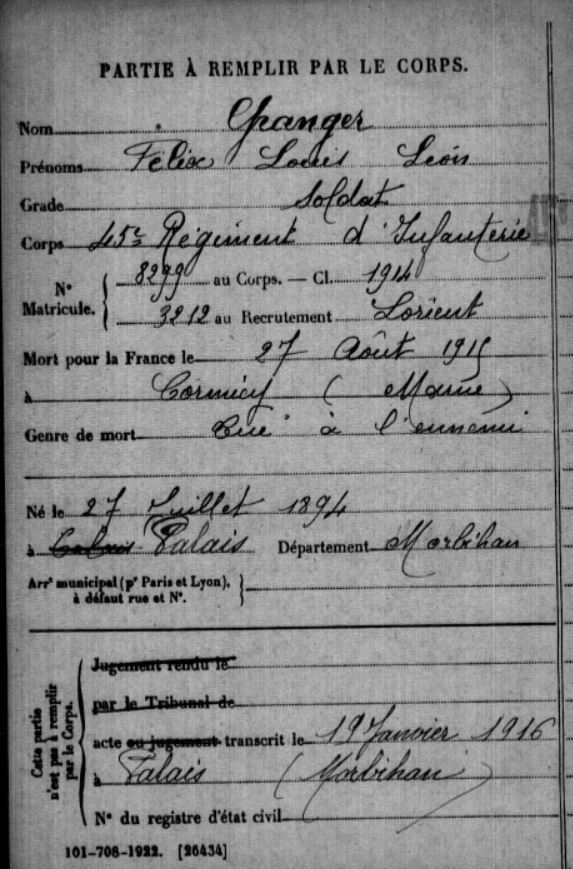 PARTIE À REMPLIR PAR LE CORPS.
Nom Granger
Prénoms Félix Louis Léon
Grade Soldat
Corps 45e Régiment d'Infanterie
N° Matricule. 8299 au Corps. — Cl. 1914
3212 au Recrutement Lorient
Mort pour la France le 27 Août 1915
à Cormicy (Marne)
Genre de mort Tué à l'ennemi
Né le 27 Juillet 1894
à Palais Département Morbihan
Arrt municipal (pr Paris et Lyon),
à défaut rue et N°.
Cette partie n'est pas à remplir par le Corps.
Jugement rendu le
par le Tribunal de
acte ou jugement transcrit le 19 Janvier 1916
à Palais (Morbihan)
N° du registre d'état civil
101-708-1922. [26434]